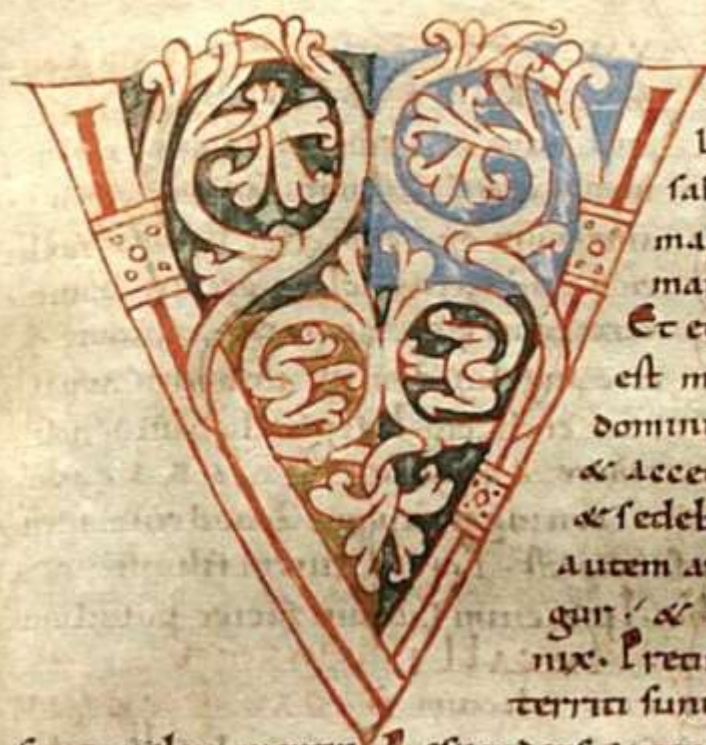 V
l
sab
ma
mar
Et e
est m
dominu
& acced
& sedeb
autem a
gur. &
nix. Preti
territi sunt